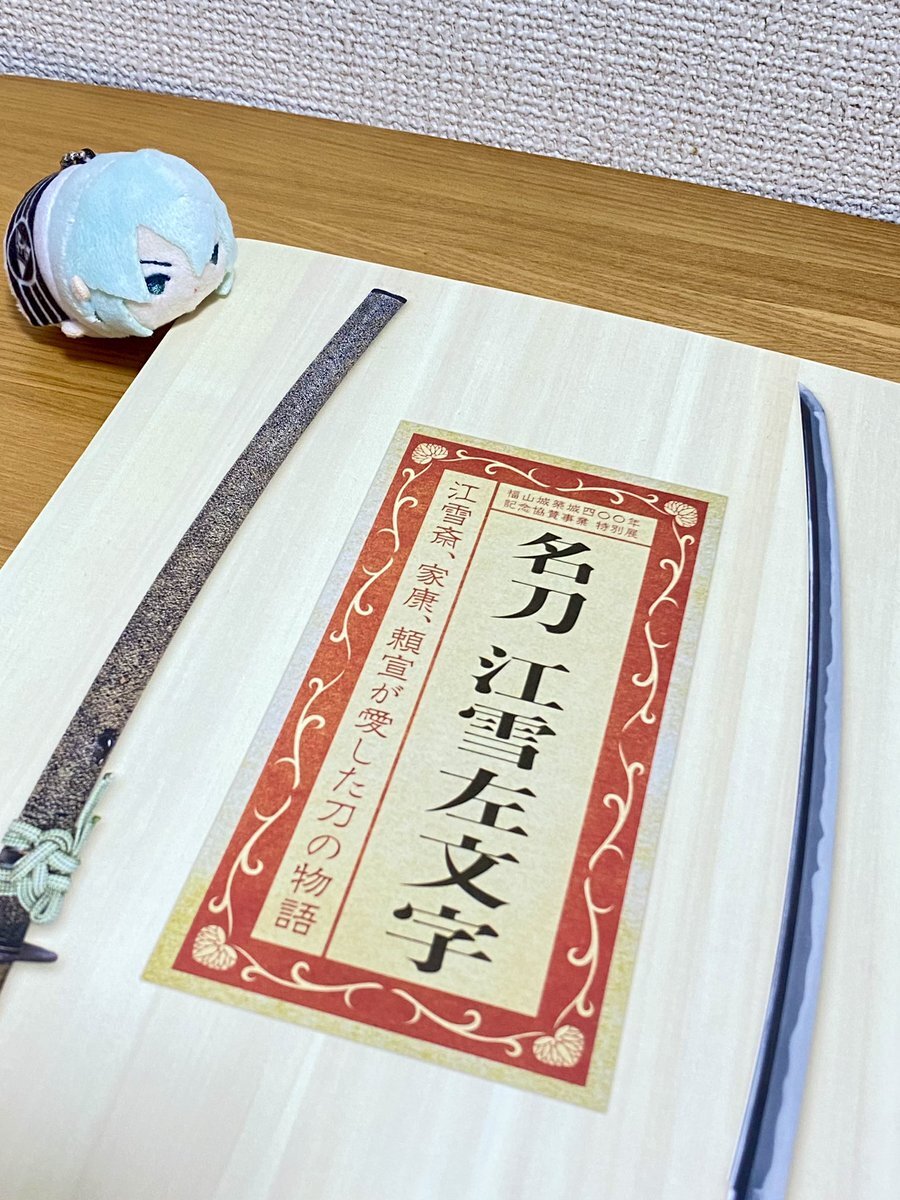 福山城築城四〇〇年
記念協賛事業 特別展
名刀 江雪左文字
江雪斎、家康、頼宣が愛した刀の物語